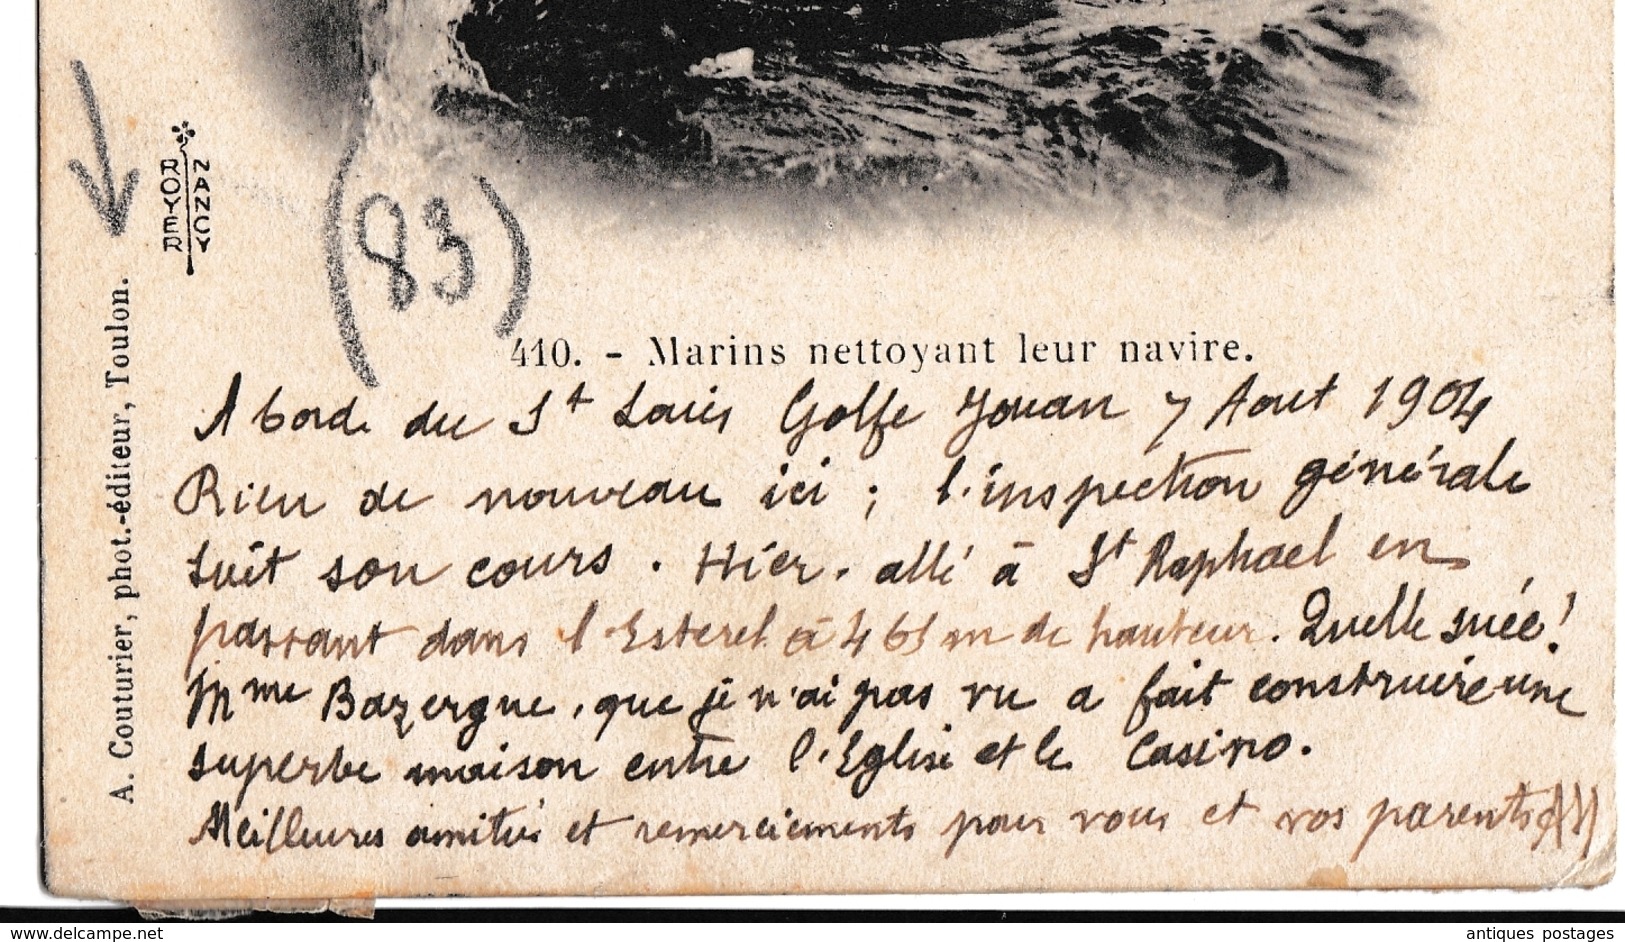 NANCY
ROYER
(83)
A. Couturier, phot.-éditeur, Toulon.
410. - Marins nettoyant leur navire.
A bord du St Louis Golfe Jouan 7 Aout 1904
Rien de nouveau ici ; l'inspection générale
suit son cours. Hier, allé à St Raphael en
passant dans l'Esterel à 461 m de hauteur. Quelle suée!
Mme Bazergue, que je n'ai pas vu a fait construire une
superbe maison entre l'Eglise et le Casino.
Meilleures amitiés et remerciements pour vous et vos parents
delcampe.net
antiques postages